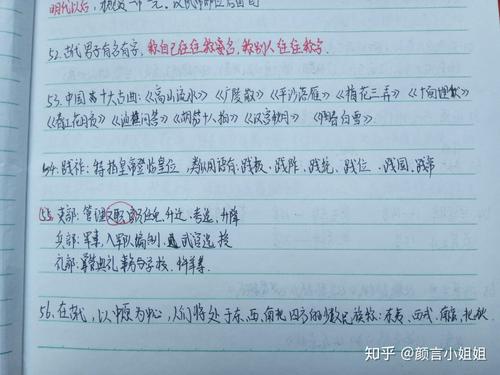 明代以后,
52. 古代男子有名有字,称自己往往称名,称别人往往称字.
53. 中国古十大古曲:《高山流水》《广陵散》《平沙落雁》《梅花三弄》《十面埋伏》
《春江花月夜》《渔樵问答》《胡笳十八拍》《汉宫秋月》《阳春白雪》
54. 践祚:特指皇帝登临皇位,类似用语有:践极、践阼、践统、践位、践国、践帝
55. 吏部:管理文职官员任免、升迁、考选、升降
兵部:军事,军队编制,武官选授
礼部:掌管典礼事务与学校、科举等.
56. 在古代,以中原为中心,人们将处于东、西、南、北四方的少数民族称:东夷、西戎、南蛮、北狄.
知乎 @颜言小姐姐